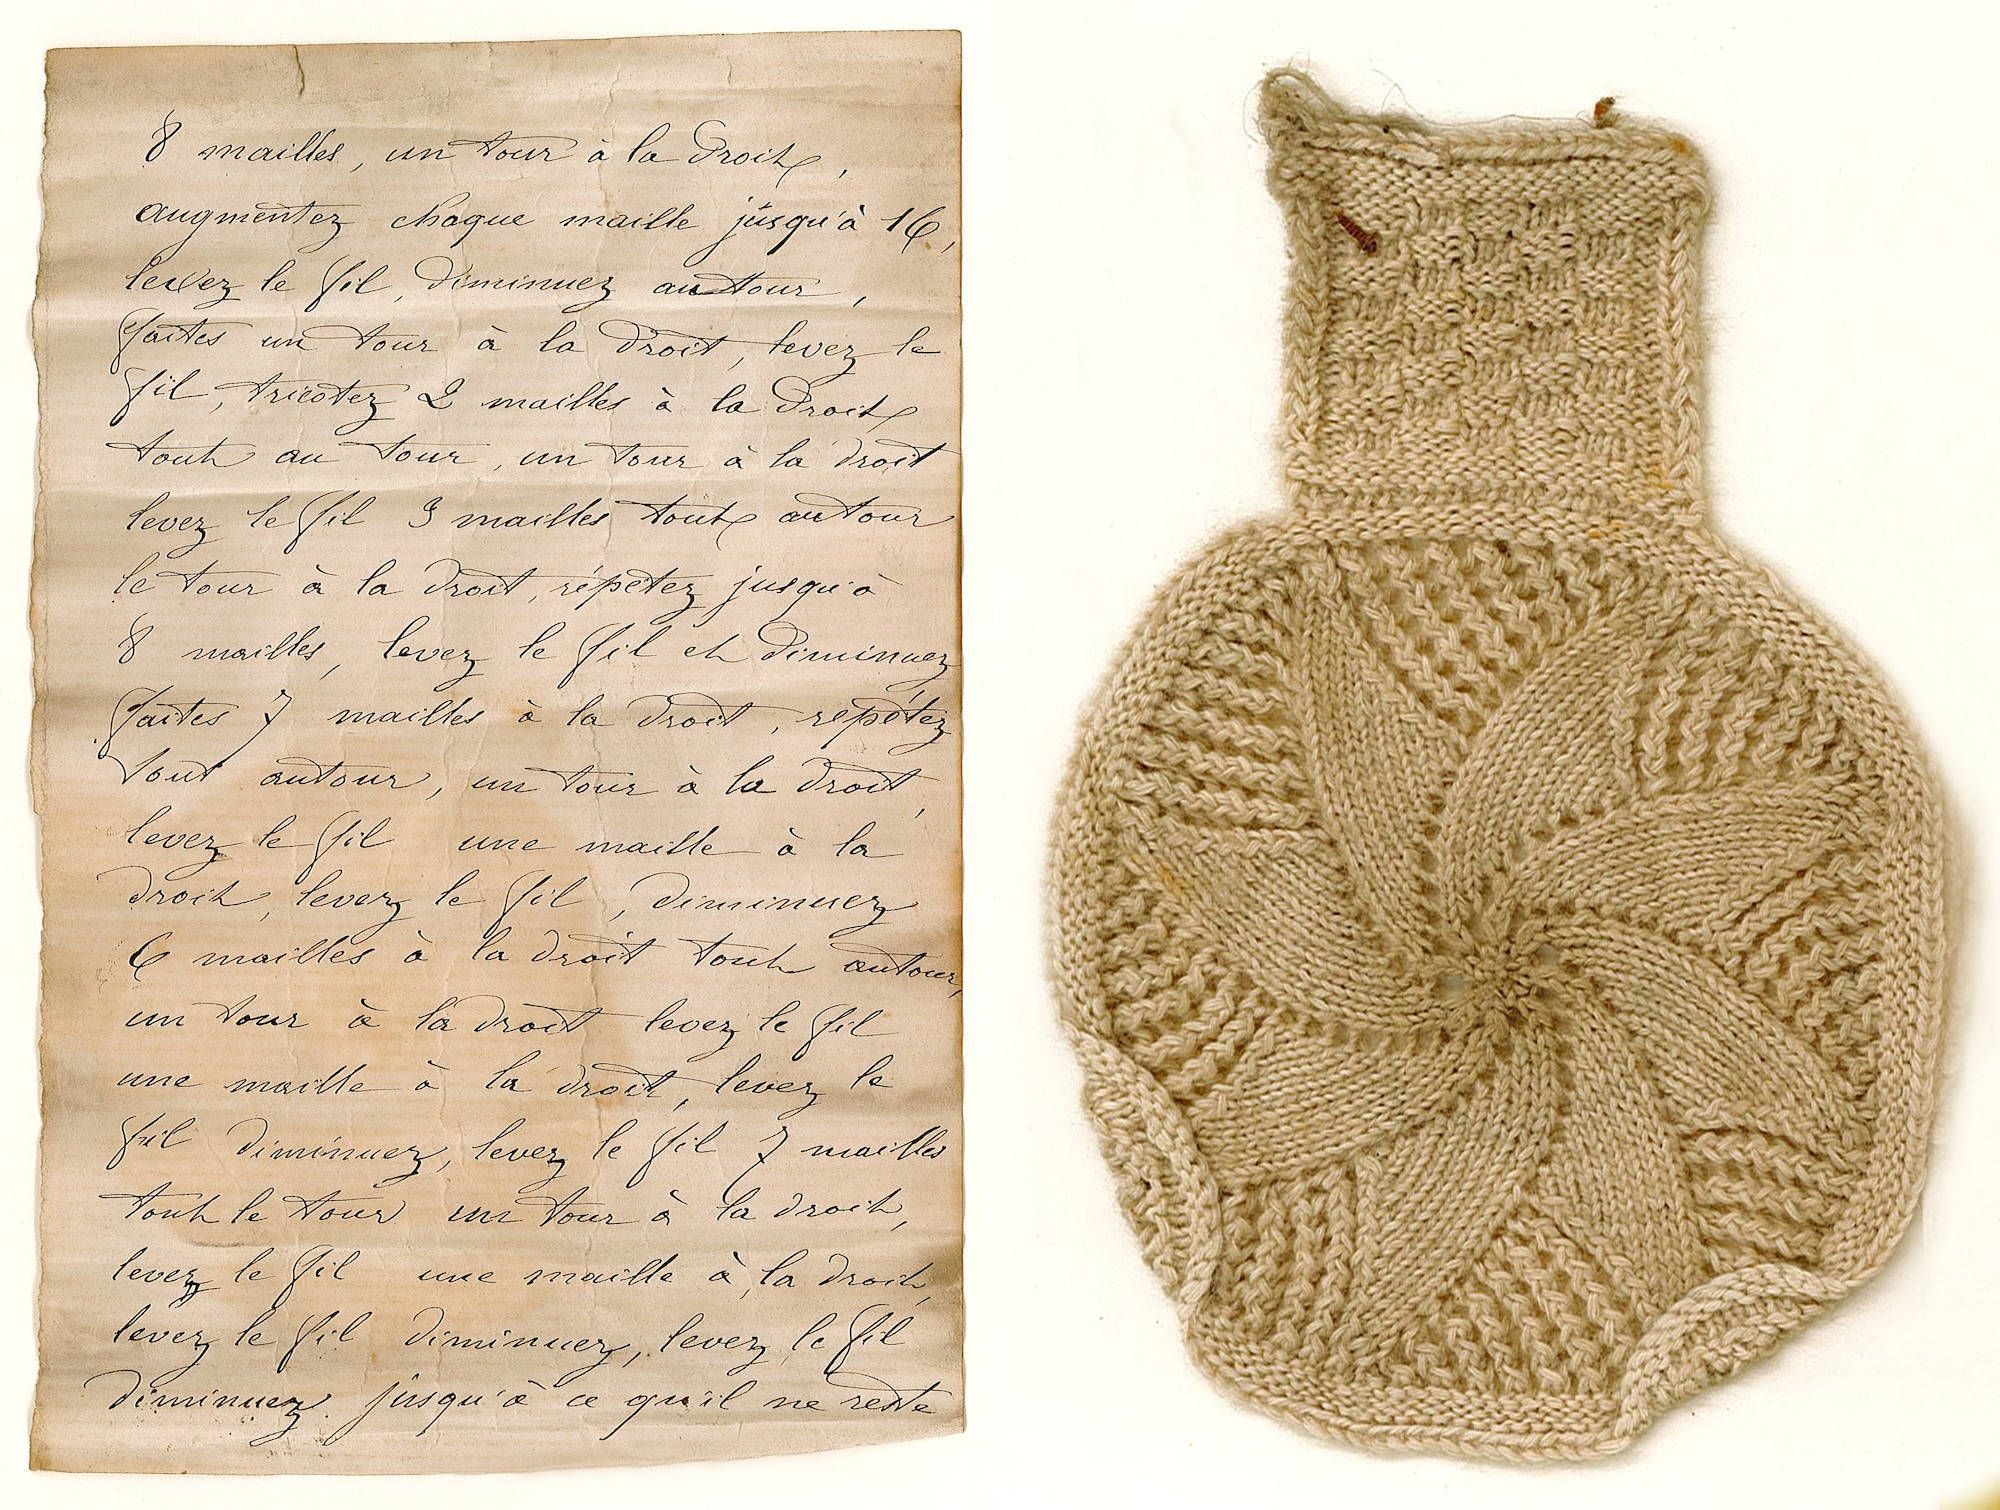 8 mailles, un tour à la Droit,
augmentez chaque maille jusqu'à 16,
levez le fil, Diminuez au tour,
faites un tour à la droit, levez le
fil, tricotez 2 mailles à la Droit
tout au tour, un tour à la droit
levez le fil 3 mailles tout autour
le tour à la droit, répétez jusqu'à
8 mailles, levez le fil et Diminuez
faites 7 mailles à la droit, répétez
tout autour, un tour à la droit,
levez le fil une maille à la
droit, levez le fil, diminuez
6 mailles à la droit tout autour,
un tour à la droit levez le fil
une maille à la droit, levez le
fil diminuez, levez le fil 7 mailles
tout le tour un tour à la droit,
levez le fil une maille à la droit,
levez le fil diminuez, levez le fil
diminuez jusqu'à ce qu'il ne reste